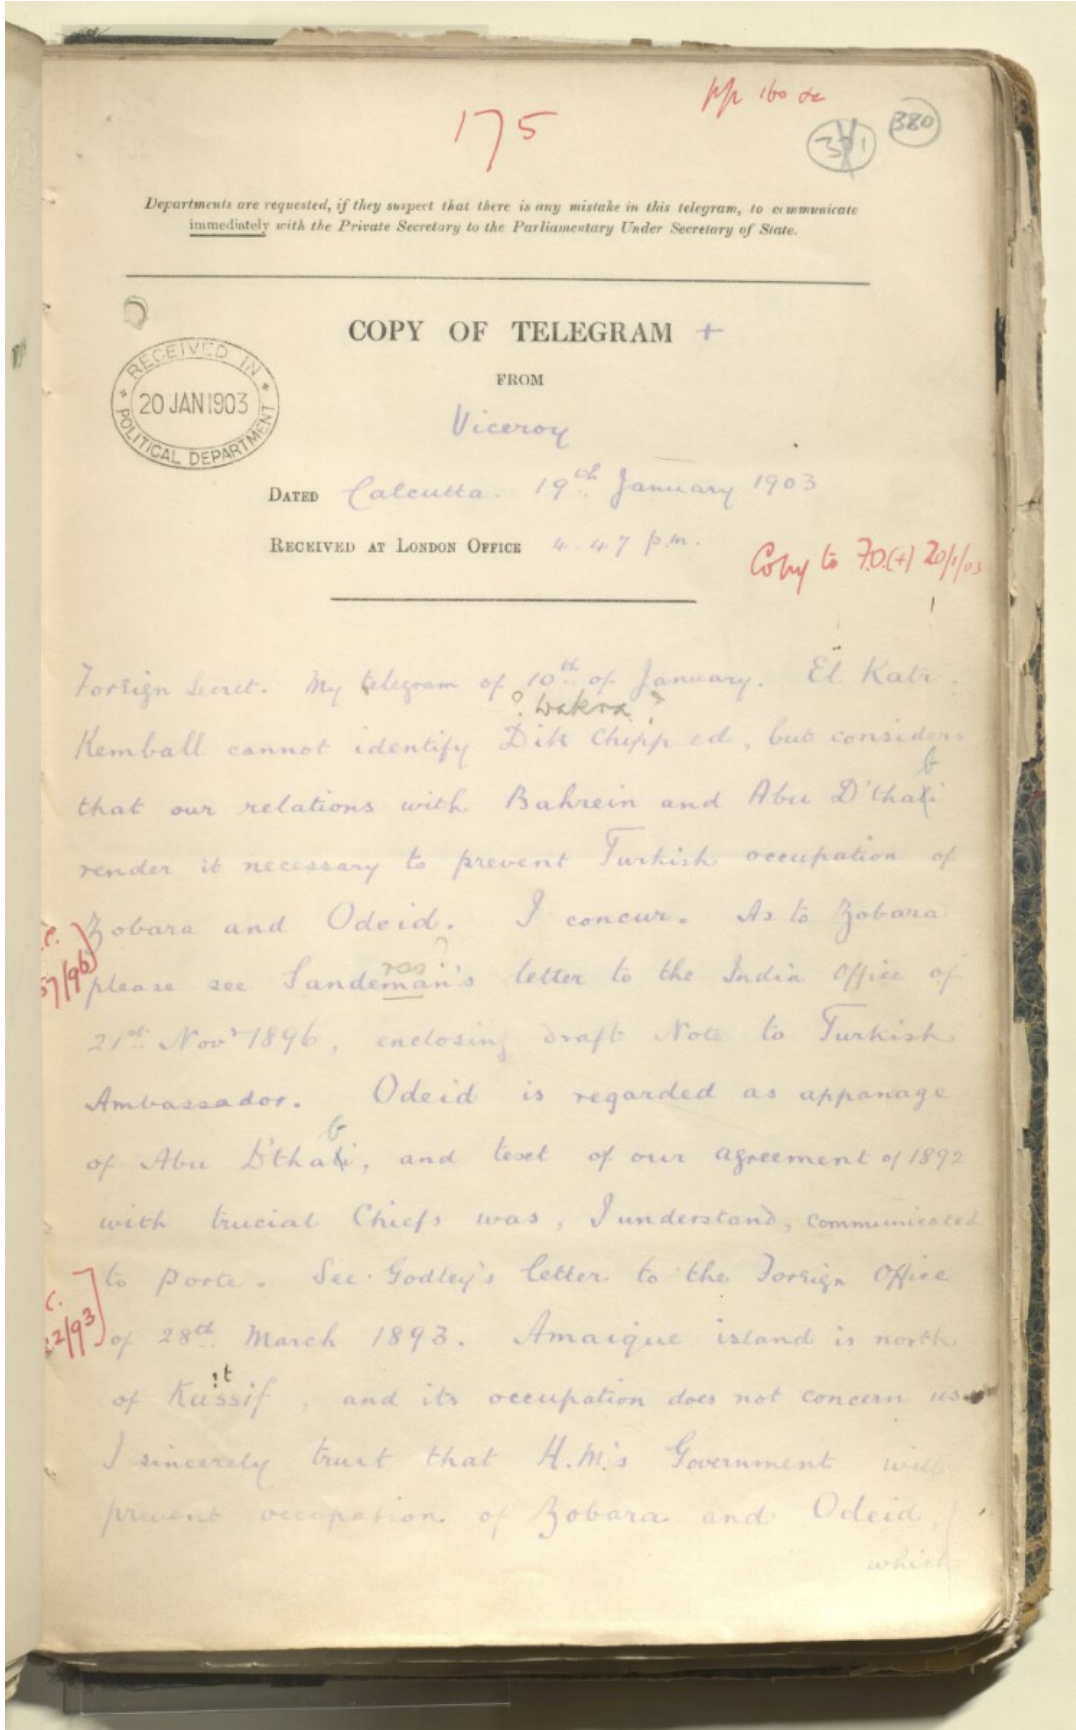 pp 160 &c
175
371
380
Departments are requested, if they suspect that there is any mistake in this telegram, to communicate
immediately with the Private Secretary to the Parliamentary Under Secretary of State.
COPY OF TELEGRAM +
FROM
RECEIVED IN
20 JAN 1903
POLITICAL DEPARTMENT
Viceroy
DATED Calcutta. 19th January 1903
RECEIVED AT LONDON OFFICE 4.47 p.m.
Copy to F.O.(+) 20/1/03
Foreign Secret. My telegram of 10th of January. El Katr.
? Wakra ?
Kemball cannot identify Dik Chipp ed, but considers
b
that our relations with Bahrein and Abu D'thali
render it necessary to prevent Turkish occupation of
Zobara and Odeid. I concur. As to Zobara
C.
57/96
please see Sandeman's letter to the India Office of
21st Novr 1896, enclosing draft Note to Turkish
Ambassador. Odeid is regarded as appanage
b
of Abu D'thali, and text of our agreement of 1892
with trucial Chiefs was, I understand, communicated
to Porte. See Godley's letter to the Foreign Office
C.
22/93
of 28th March 1893. Amaique island is north
t
of Kassif, and its occupation does not concern us.
I sincerely trust that H.M.'s Government will
prevent occupation of Zobara and Odeid,
which